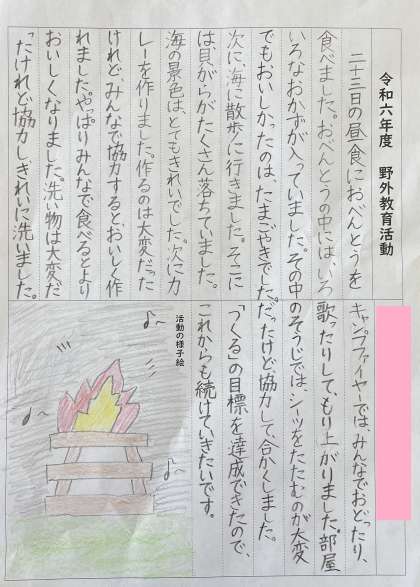 令和六年度 野外教育活動
二十三日の昼食におべんとうを
食べました。おべんとうの中には、いろ
いろなおかずが入っていました。その中
でもおいしかったのは、たまごやきでした。
次に、海に散歩に行きました。そこに
は、貝がらがたくさん落ちていました。
海の景色は、とてもきれいでした。次にカ
レーを作りました。作るのは大変だった
けれど、みんなで協力するとおいしく作
れました。やっぱりみんなで食べるとより
おいしくなりました。洗い物は大変だ
ったけれど、協力し、きれいに洗いました。
キャンプファイヤーでは、みんなでおどったり、
歌ったりして、もり上がりました。部屋
のそうじでは、シーツをたたむのが大変
だったけど、協力して、合かくしました。
「つくる」の目標を達成できたので、
これからも続けていきたいです。
活動の様子絵